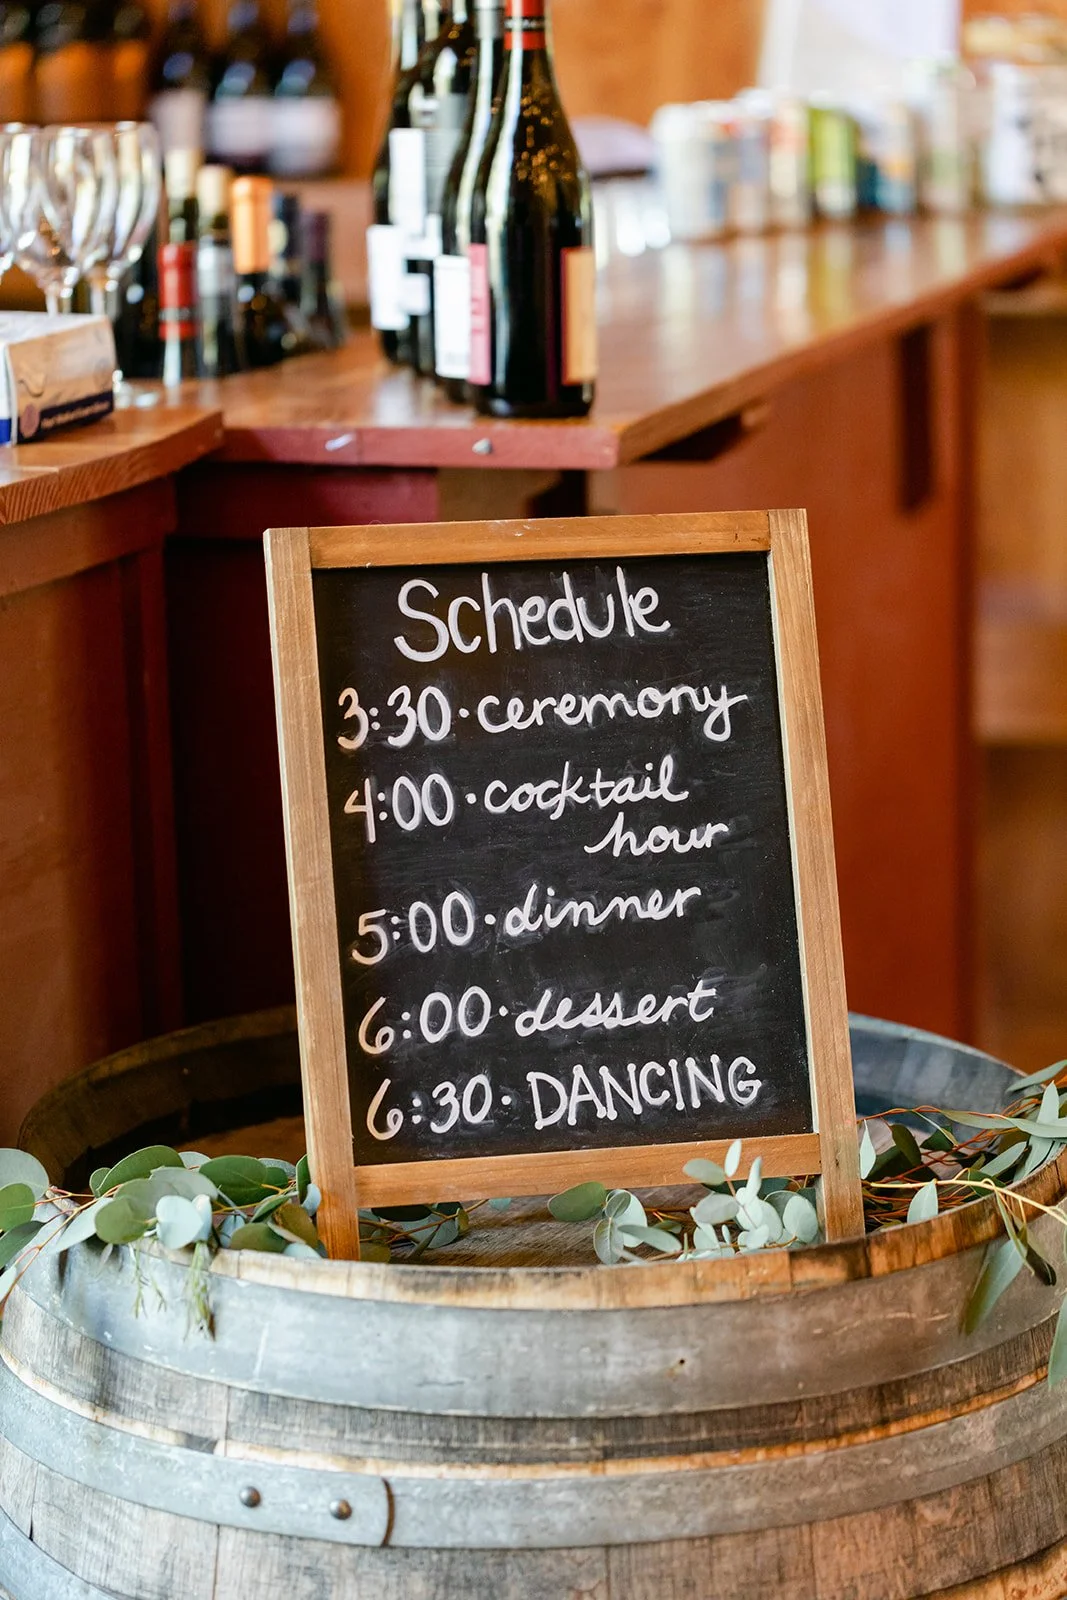 Schedule
3:30 · ceremony
4:00 · cocktail
hour
5:00 · dinner
6:00 · dessert
6:30 · DANCING